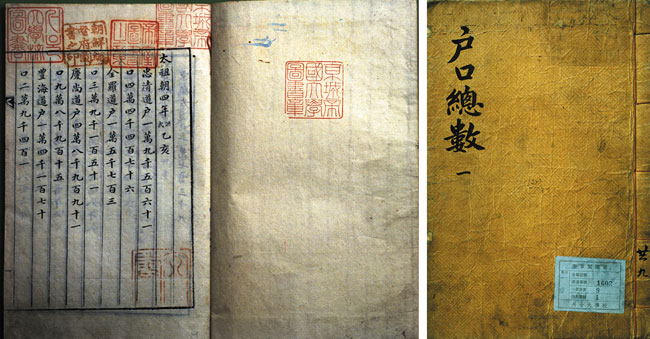 太祖朝四年乙亥
忠清道戶一萬九千五百六十一
口四萬四千四百七十六
全羅道戶一萬五千七百三
口三萬九千一百五十一
慶尚道戶四萬八千九百九十一
口九萬八千九百十五
豊海道戶一萬四千一百七十
口二萬九千四百一
朝鮮總督府圖書之印
京城帝國大學圖書章
戶口總數
一
共九
1602
9
1